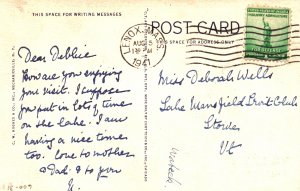 THIS SPACE FOR WRITING MESSAGES
POST CARD
SPACE FOR ADDRESS ONLY
LENOX, MASS.
AUG 5
1 PM
1941
FOR DEFENSE
Dear Debbie
How are you enjoying
your visit. I suppose
you put in lots of time
on the lake. I am
having a nice time
too. Love to mother
Dad & to you
Miss Deborah Wells
Lake Mansfield Trout Club
Stowe
Vt